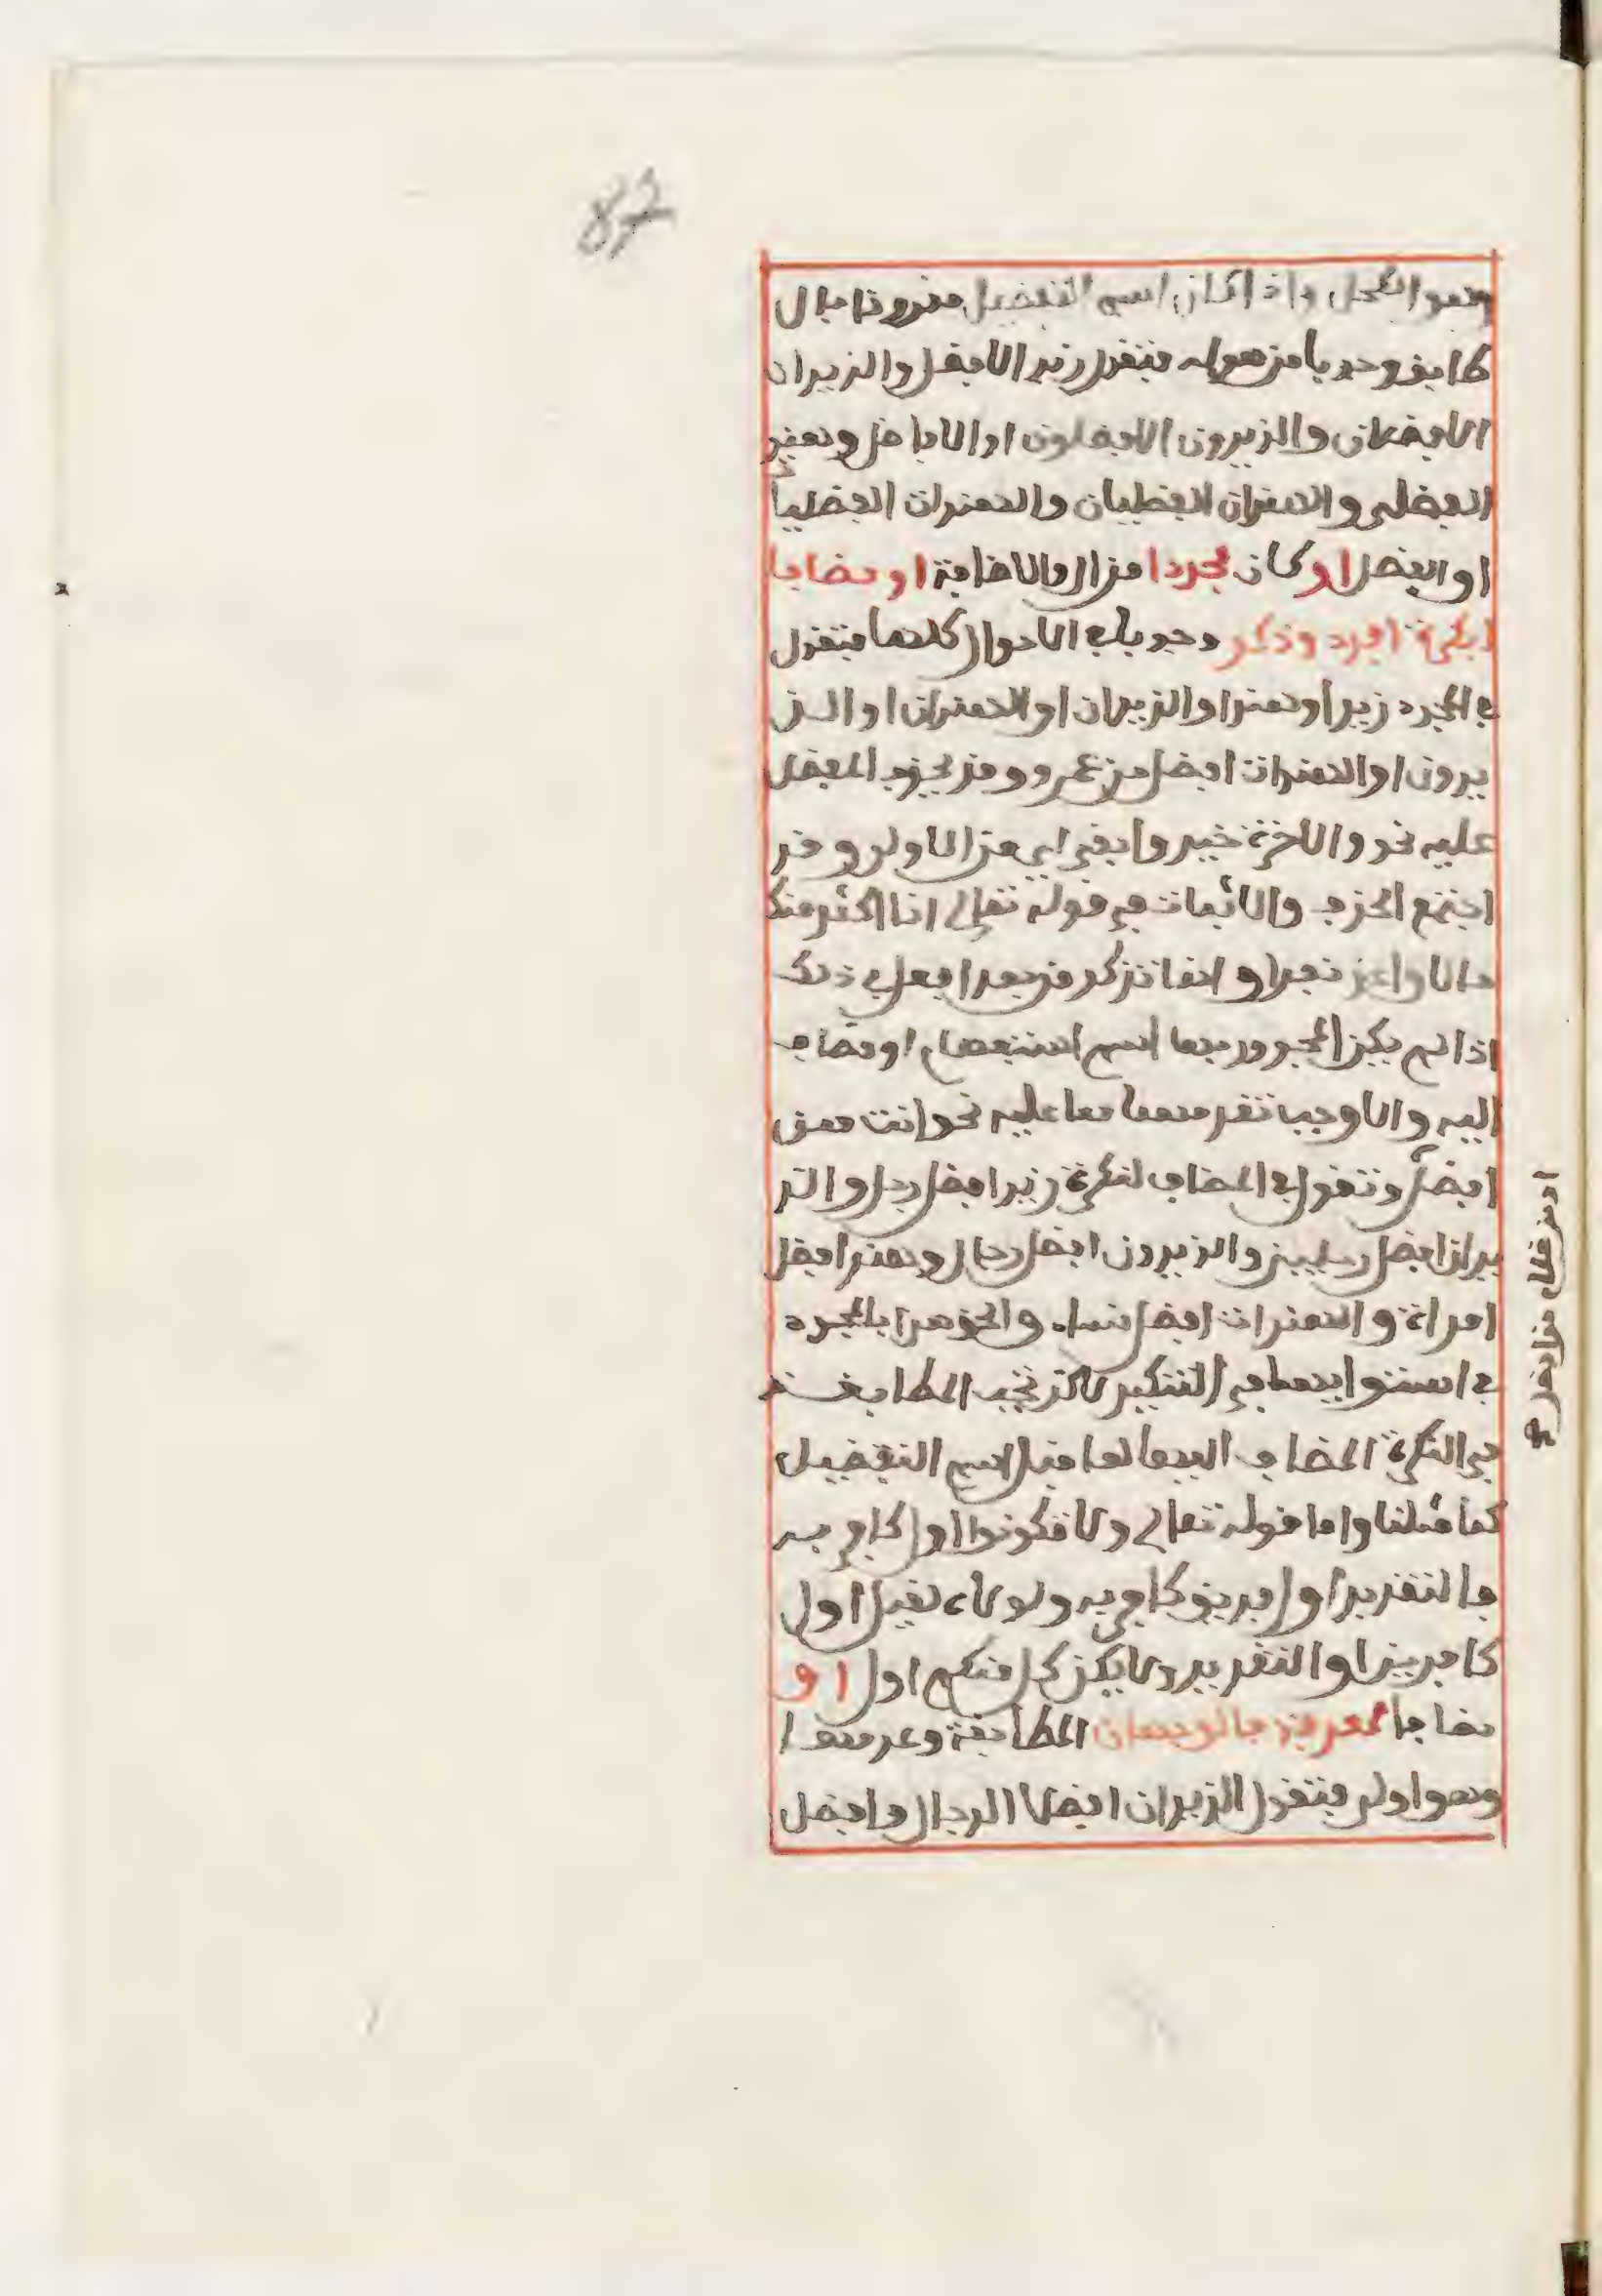 87
وهو الكحل واذا كان اسم التفضيل مقرونا بال
طابق وجوبا من هوله فتقول زيد الافضل والزيدان
الافضلان والزيدون الافضلون او الافاضل وهند
الفضلى والهندان الفضليان والهندات الفضليا
او الفضل او كان مجردا من ال والاضافة او مضافا
لنكرة افرد وذكر وجوبا في الاحوال كلها فتقول
في المجرد زيد او هند او الزيدان او الهندان او الز
يدون او الهندات افضل من عمرو ومن يحذف المفضل
عليه نحو والاخرة خير وابقى اي من الاولى وقد
اجتمع الحذف والاثبات في قوله تعالى انا اكثر منك
مالا واعز نفرا و انما تذكر من بعد افعل في ذلك
اذا لم يكن المجرور بها اسم استفهام او مضاف
اليه والا وجب تقدمها معا عليه نحو انت ممن
افضل وتقول في المضاف لنكرة زيد افضل رجل والز
يدان افضل رجلين والزيدون افضل رجال وهند افضل
امراة و الهندات افضل نساء والحق هذا بالمجرد
في استوايهما في التنكير لاكن تجب المطابقة
في النكرة المضاف اليها لما قبل اسم التفضيل
كما مثلنا واما قوله تعالى ولا تكونوا اول كافر به
فالتقدير اول فريق كافر به ولولا لقيل اول
كافرين او التقدير ولا يكن كل منكم اول او
مضافا لمعرفة فالوجهان المطابقة وعدمها
وهو اولى فتقول الزيدان افضلا الرجال وافضل